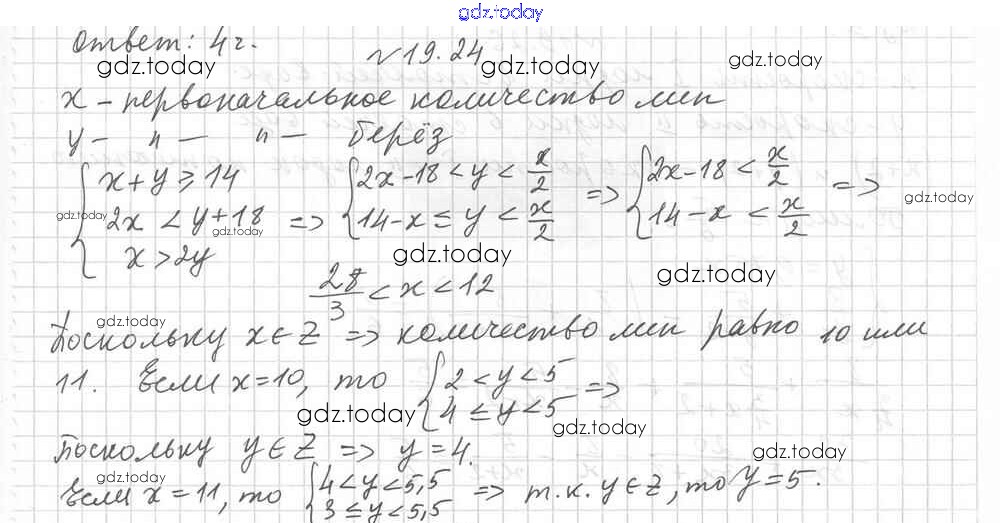 gdz.today
Ответ: 4 г.
№ 19.24
gdz.today gdz.today gdz.today
x – первоначальное количество лип
y – " – " – берёз
{ x + y ≥ 14 { 2x - 18 < y < x/2 { 2x - 18 < x/2
{ 2x < y + 18 => { 14 - x ≤ y < x/2 => { 14 - x < x/2 =>
{ x > 2y
gdz.today gdz.today gdz.today
gdz.today gdz.today
28/3 < x < 12
gdz.today
Поскольку x ∈ Z => количество лип равно 10 или
11. Если x = 10, то { 2 < y < 5 =>
{ 4 ≤ y < 5
gdz.today gdz.today
Поскольку y ∈ Z => y = 4.
gdz.today gdz.today
Если x = 11, то { 4 < y < 5,5 => т.к. y ∈ Z, то y = 5.
{ 3 ≤ y < 5,5